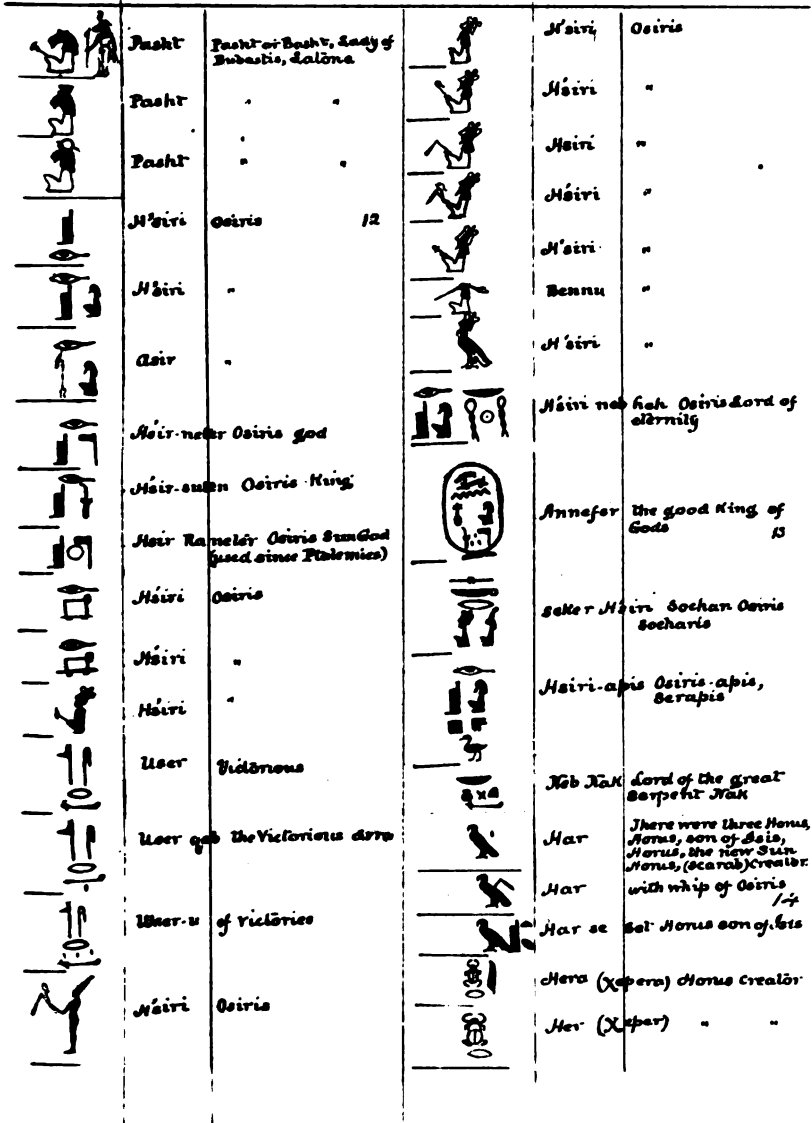 Pasht Pasht or Basht, Lady of
Bubastis, Latona
Pasht " "
Pasht " "
H'siri Osiris 12
H'siri "
Asir "
H'sir-neter Osiris god
H'sir-suten Osiris King
Hsir Raneter Osiris Sun God
(used since Ptolemies)
H'siri Osiris
H'siri "
H'siri "
User Victorious
User qeb the Victorious arm
User-u of victories
H'siri Osiris
H'siri Osiris
H'siri "
Hsiri "
H'siri "
H'siri "
Bennu "
H'siri "
H'siri neb heh Osiris Lord of
eternity
Annefer the good King of
Gods 13
Seker H'siri Sochan Osiris
Socharis
Hsiri-apis Osiris-apis,
Serapis
Neb Nak Lord of the great
Serpent Nak
Har There were three Horus,
Horus, son of Isis,
Horus, the new Sun
Horus, (scarab) Creator.
Har with whip of Osiris
14
Har se Set Horus son of Isis
Hera (Xepera) Horus Creator
Her (Xeper) " "